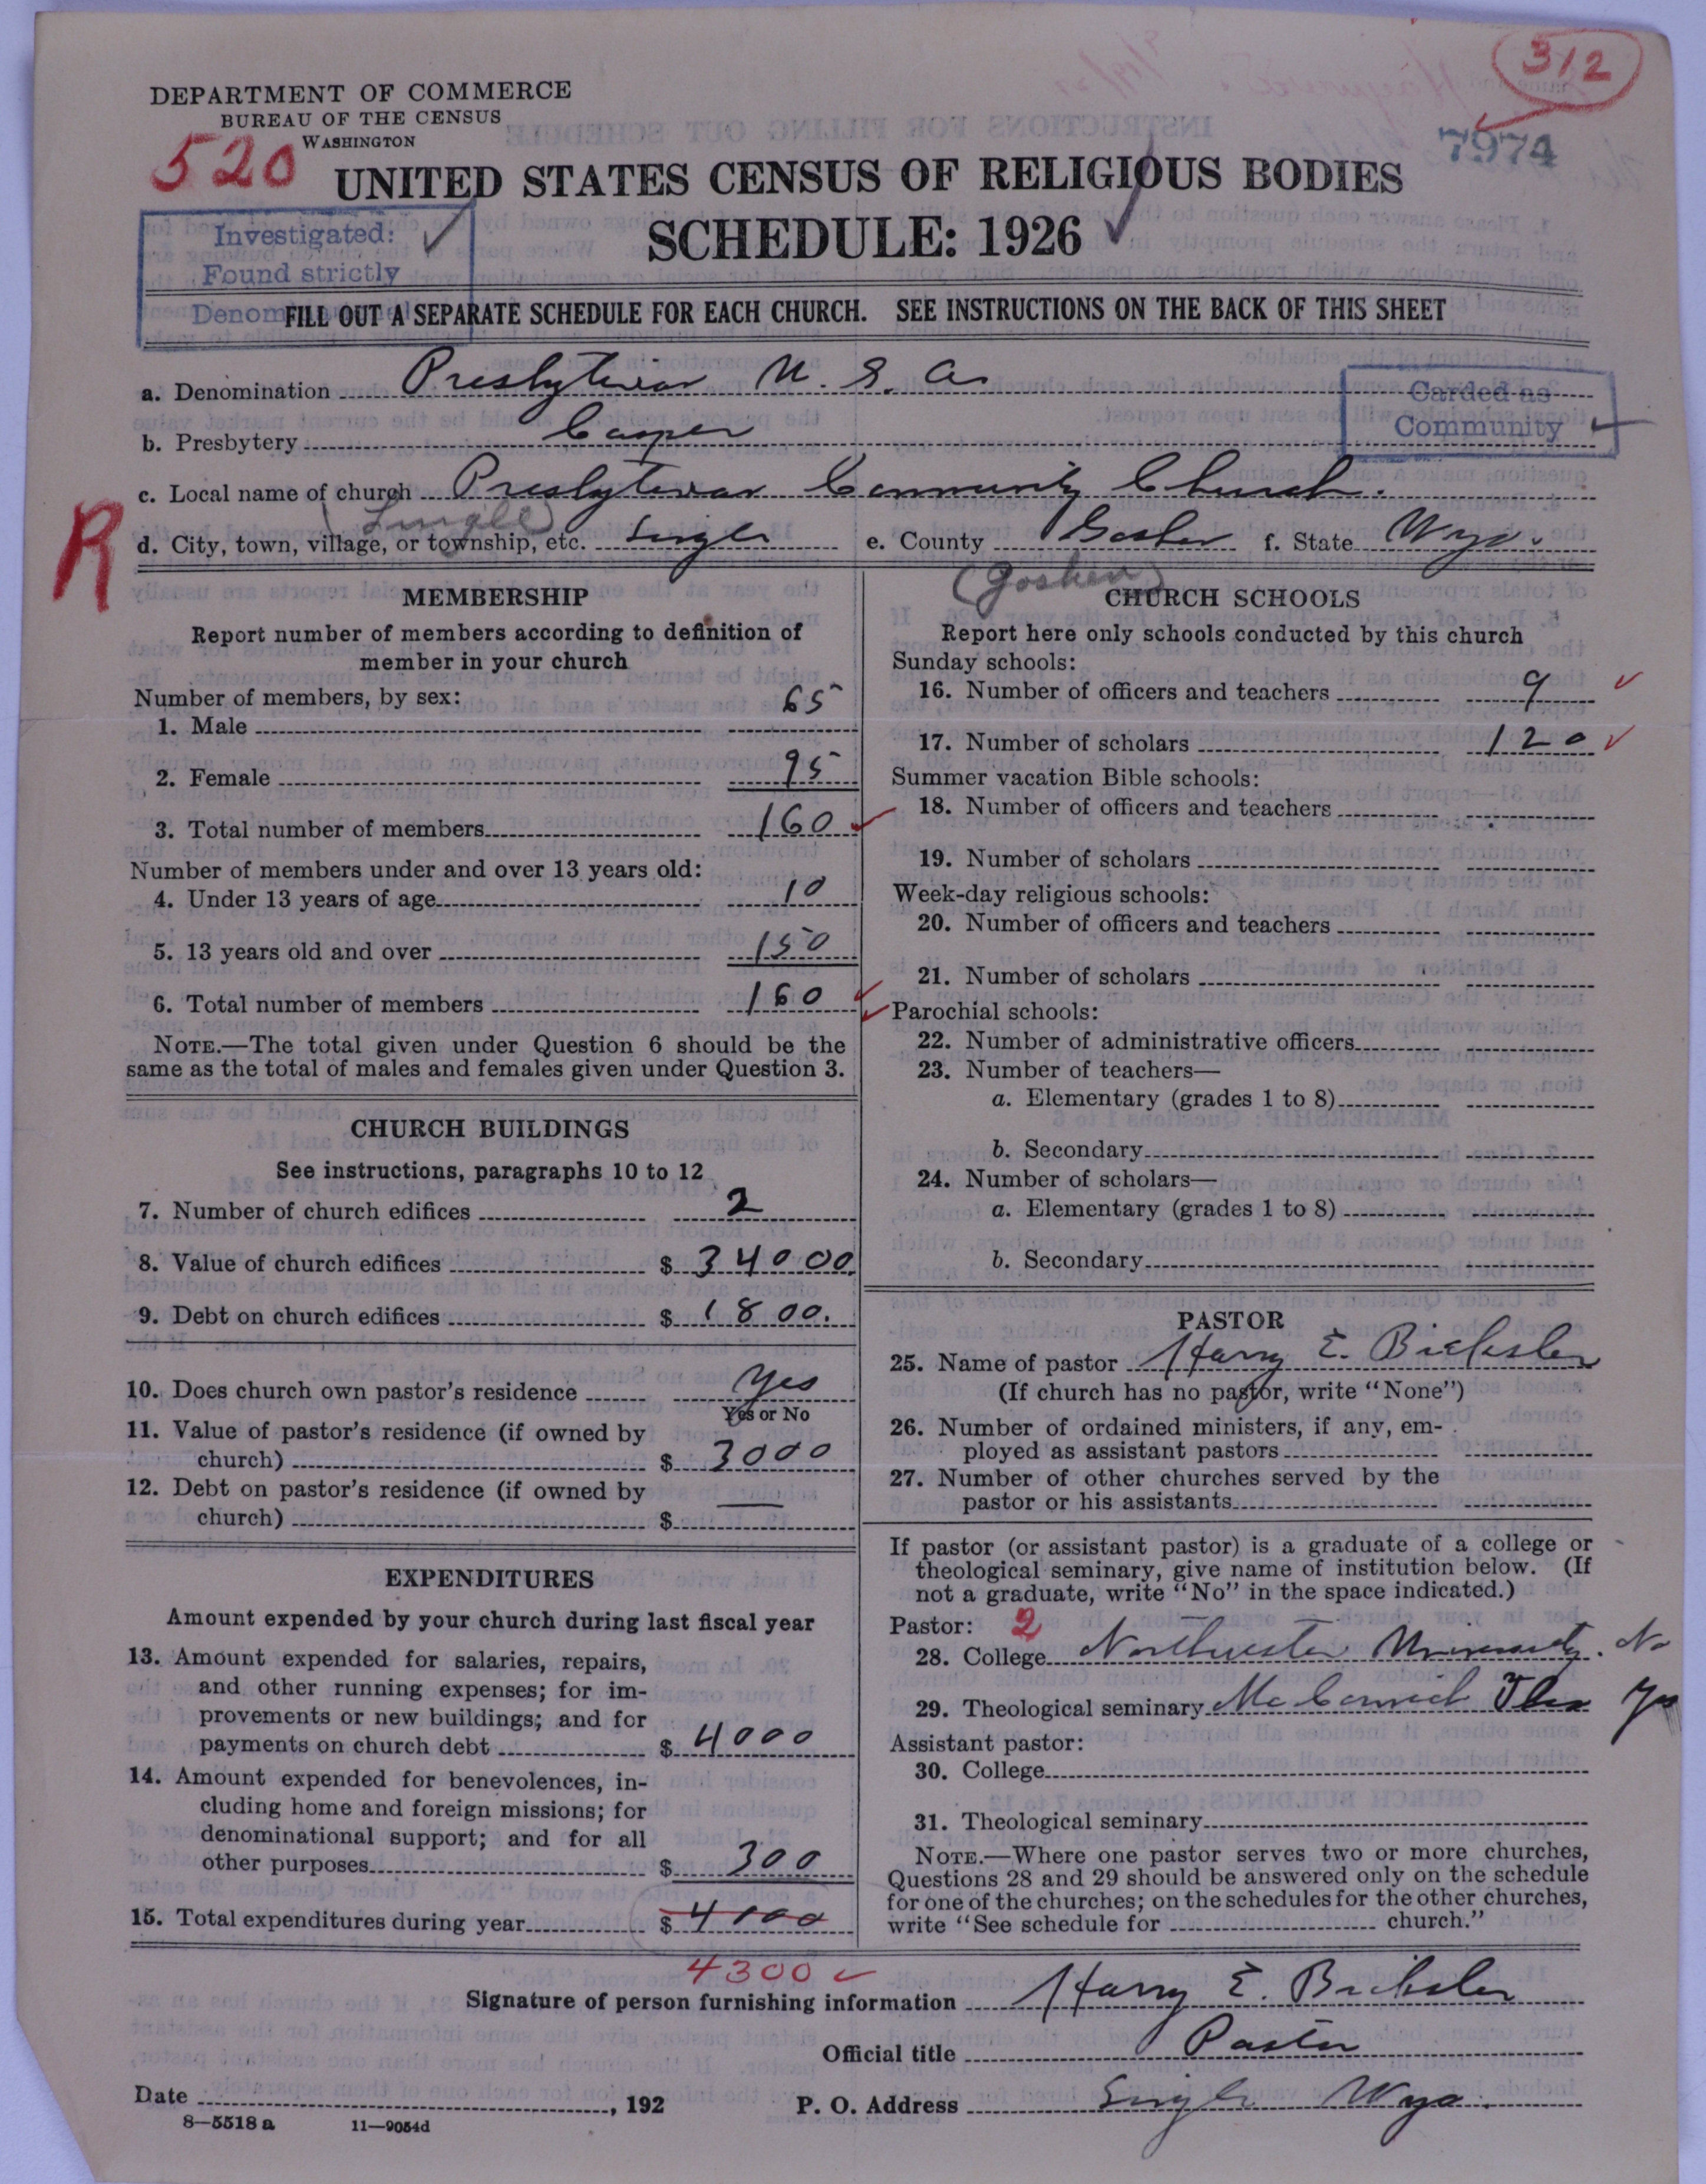 312
DEPARTMENT OF COMMERCE
BUREAU OF THE CENSUS
WASHINGTON
7974
520
UNITED STATES CENSUS OF RELIGIOUS BODIES
SCHEDULE: 1926
Investigated:
Found strictly
FILL OUT A SEPARATE SCHEDULE FOR EACH CHURCH. SEE INSTRUCTIONS ON THE BACK OF THIS SHEET
a. Denomination Presbyterian U. S. A.
Carded as
Community
b. Presbytery Casper
c. Local name of church Presbyterian Community Church.
(Lingle)
R
d. City, town, village, or township, etc. Lingle e. County Goshen f. State Wyo.
(Goshen)
MEMBERSHIP
Report number of members according to definition of
member in your church
Number of members, by sex:
1. Male 65
2. Female 95
3. Total number of members 160
Number of members under and over 13 years old:
4. Under 13 years of age 10
5. 13 years old and over 150
6. Total number of members 160
NOTE.—The total given under Question 6 should be the
same as the total of males and females given under Question 3.
CHURCH BUILDINGS
See instructions, paragraphs 10 to 12
7. Number of church edifices 2
8. Value of church edifices $ 34000.
9. Debt on church edifices $ 1800.
10. Does church own pastor's residence Yes
Yes or No
11. Value of pastor's residence (if owned by
church) $ 3000
12. Debt on pastor's residence (if owned by
church) $ —
EXPENDITURES
Amount expended by your church during last fiscal year
13. Amount expended for salaries, repairs,
and other running expenses; for im-
provements or new buildings; and for
payments on church debt $ 4000
14. Amount expended for benevolences, in-
cluding home and foreign missions; for
denominational support; and for all
other purposes $ 300
15. Total expenditures during year $ 4000
4300
CHURCH SCHOOLS
Report here only schools conducted by this church
Sunday schools:
16. Number of officers and teachers 9
17. Number of scholars 120
Summer vacation Bible schools:
18. Number of officers and teachers
19. Number of scholars
Week-day religious schools:
20. Number of officers and teachers
21. Number of scholars
Parochial schools:
22. Number of administrative officers
23. Number of teachers—
a. Elementary (grades 1 to 8)
b. Secondary
24. Number of scholars—
a. Elementary (grades 1 to 8)
b. Secondary
PASTOR
25. Name of pastor Harry E. Bicksler
(If church has no pastor, write "None")
26. Number of ordained ministers, if any, em-
ployed as assistant pastors
27. Number of other churches served by the
pastor or his assistants
If pastor (or assistant pastor) is a graduate of a college or
theological seminary, give name of institution below. (If
not a graduate, write "No" in the space indicated.)
Pastor: 2
28. College Northwestern University. No
29. Theological seminary McCormick Theo Yes
Assistant pastor:
30. College
31. Theological seminary
NOTE.—Where one pastor serves two or more churches,
Questions 28 and 29 should be answered only on the schedule
for one of the churches; on the schedules for the other churches,
write "See schedule for church."
Signature of person furnishing information Harry E. Bicksler
Official title Pastor
Date , 192 P. O. Address Lingle Wyo.
8—5518 a 11—9054d